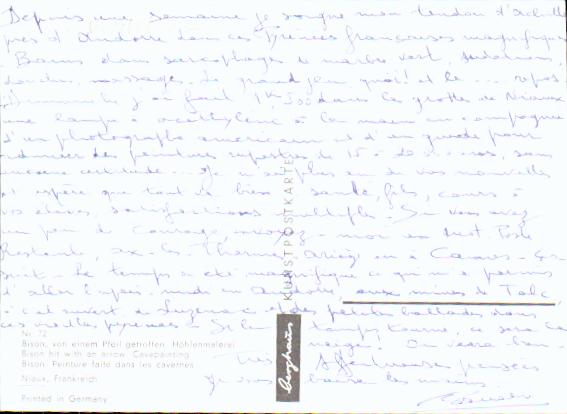 Depuis une semaine je soigne mon tendon d'Achille
près d'Andorre dans ces Pyrénées françaises magnifiques
Bains dans sarcophages de marbre vert, sudations,
douches, massages. Le grand jeu quoi! et le ... repos
Dimanche j'ai fait 1k500 dans la grotte de Niaux
une lampe à acétylène à la main en compagnie
d'un photographe américain et d'un guide pour
admirer des peintures rupestres de 15 à 20 000 ans, sans
aucune certitude... Je n'ai plus eu de vos nouvelles
et espère que tout va bien: santé, fils, cours à
vos élèves, satisfactions multiples. Si vous avez
un peu de courage, moi Poste
Restante, Ax-les-Thermes, Ariège ou à Cannes
Le temps a été magnifique ce qui m'a permis
d'aller en Andorre, aux mines de Talc
à ciel ouvert à Luzenac et des petites ballades dans
ces belles Pyrénées. Si le temps tourne, ce sera la
neige! On verra bien.
Très Affectueuses pensées
Je vous baise les mains
Nr. 72
Bison, von einem Pfeil getroffen. Höhlenmalerei
Bison hit with an arrow. Cavepainting
Bison. Peinture faite dans les cavernes
Niaux, Frankreich
Printed in Germany
KUNSTPOSTKARTE
berghaus